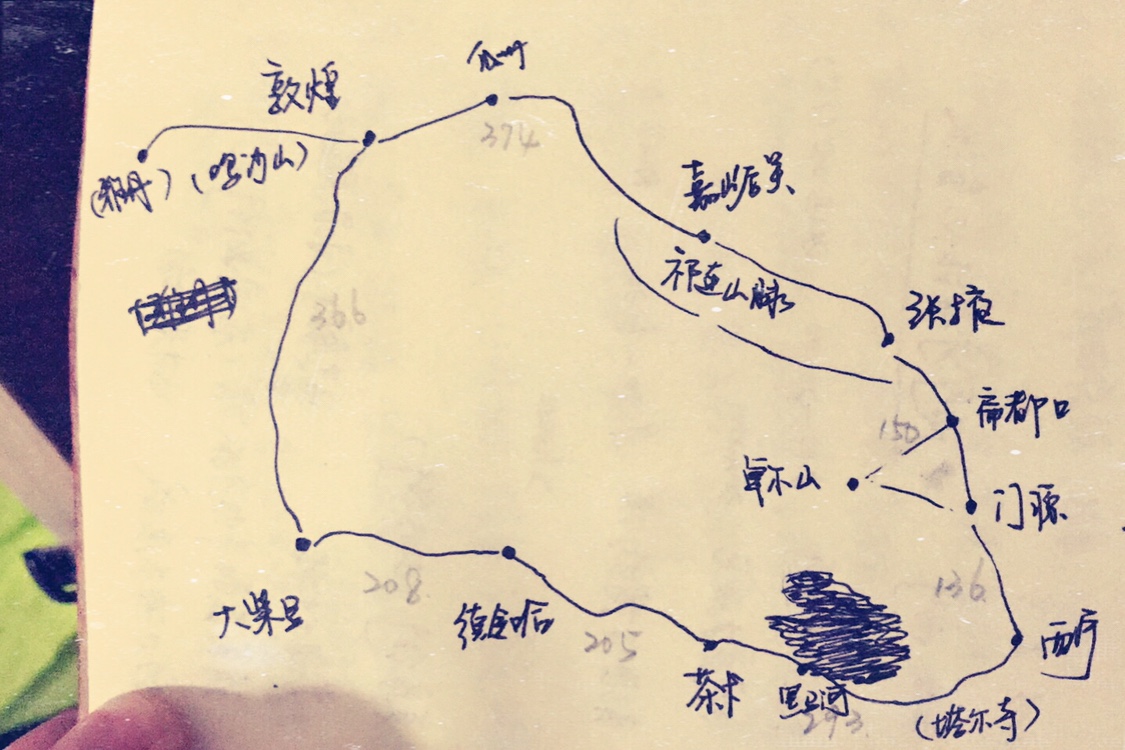 瓜州
敦煌
374
(雅丹)
(鸣沙山)
嘉峪关
祁连山脉
张掖
366
150
扁都口
卓尔山
门源
136
208
大柴旦
德令哈
205
茶卡
黑马河
293
西宁
(塔尔寺)